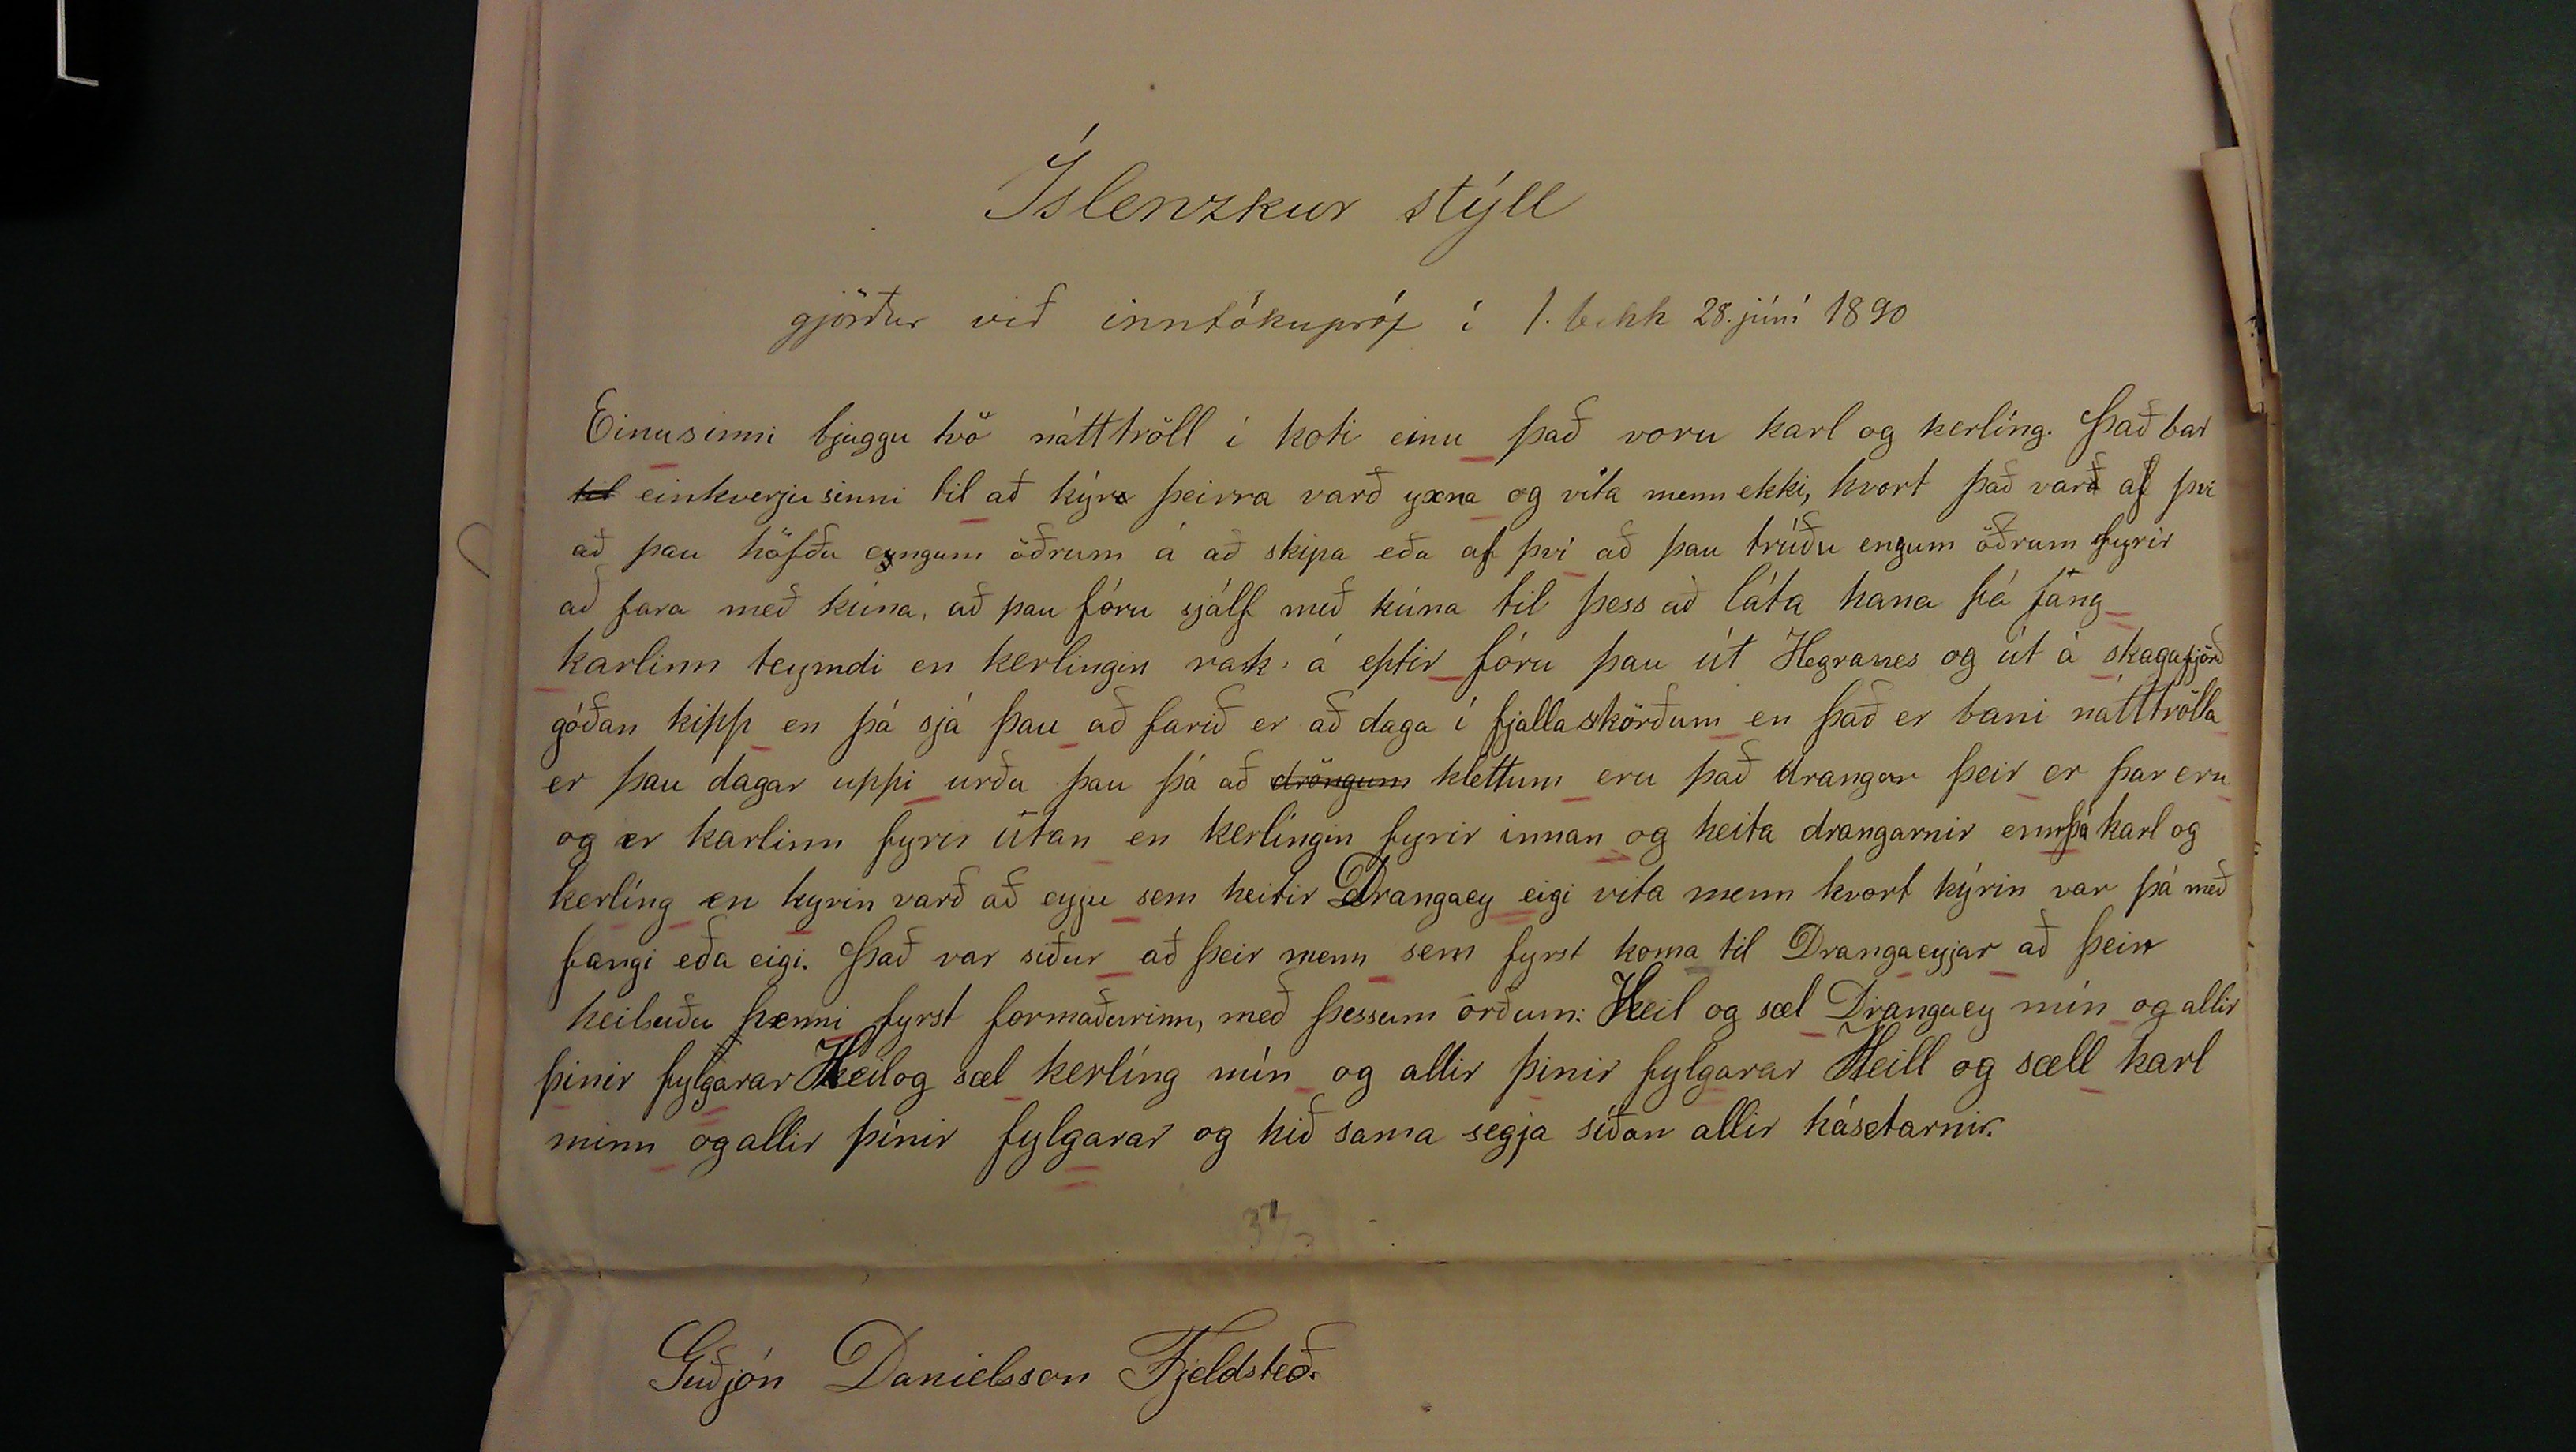 Íslenzkur stýll
gjörður við inntökupróf í 1. bekk 28. júní 1890
Einusinni bjuggu tvö nátttröll í koti einu það voru karl og kerlíng. Það bar
til einhverju sinni til að kýr þeirra varð yxna og vita menn ekki, hvort það var af því
að þau höfðu eyngum öðrum á að skipa eða af því að þau trúðu engum öðrum fyrir
að fara með kúna, að þau fóru sjálf með kúna til þess að láta hana fá fáng
karlinn teymdi en kerlingin rak á eptir fóru þau út Hegranes og út á skagafjörð
góðan kipp en þá sjá þau að farið er að daga í fjallaskörðum en það er bani nátttrölla
er þau dagar uppi urðu þau þá að dröngum klettum eru það drangar þeir er þar eru
og er karlinn fyrir útan en kerlíngin fyrir innan og heita drangarnir ennþá karl og
kerlíng en kyrin varð að eyju sem heitir Drangaey eigi vita menn hvort kýrin var þá með
fangi eða eigi. Það var siður að þeir menn sem fyrst koma til Drangaeyjar að þeir
heilsuðu henni fyrst formaðurinn, með þessum orðum: Heil og sæl Drangaey mín og allir
þinir fylgarar Heil og sæl kerlíng mín og allir þinir fylgarar Heill og sæll karl
minn og allir þínir fylgarar og hið sama segja síðan allir hásetarnir.
Guðjón Danielsson Fjeldsteð.